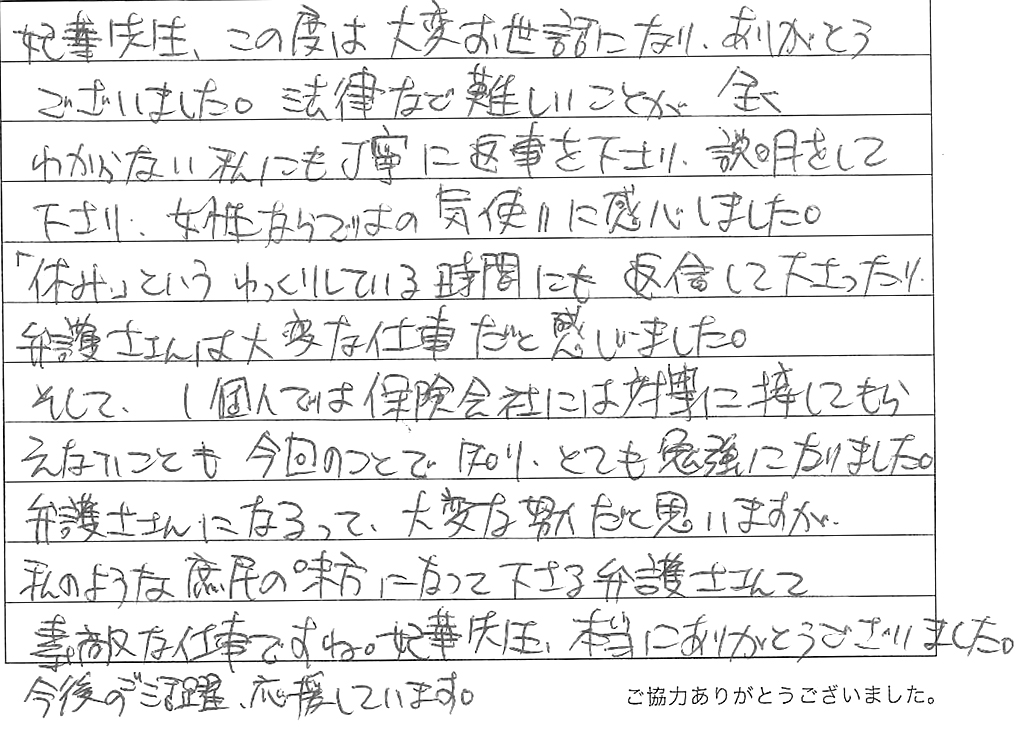 妃華先生、この度は大変お世話になり、ありがとう
ございました。法律など難しいことが全く
わからない私にも丁寧に返事を下さり、説明をして
下さり、女性ならではの気使いに感心しました。
「休み」というゆっくりしている時間にも返信して下さったり、
弁護士さんは大変な仕事だと感じました。
そして、1個人では保険会社には対等に接してもら
えないことも今回のことで知り、とても勉強になりました。
弁護士さんになるって、大変な努力だと思いますが、
私のような庶民の味方になって下さる弁護士さんて
素敵な仕事ですね。妃華先生、本当にありがとうございました。
今後のご活躍、応援しています。
ご協力ありがとうございました。